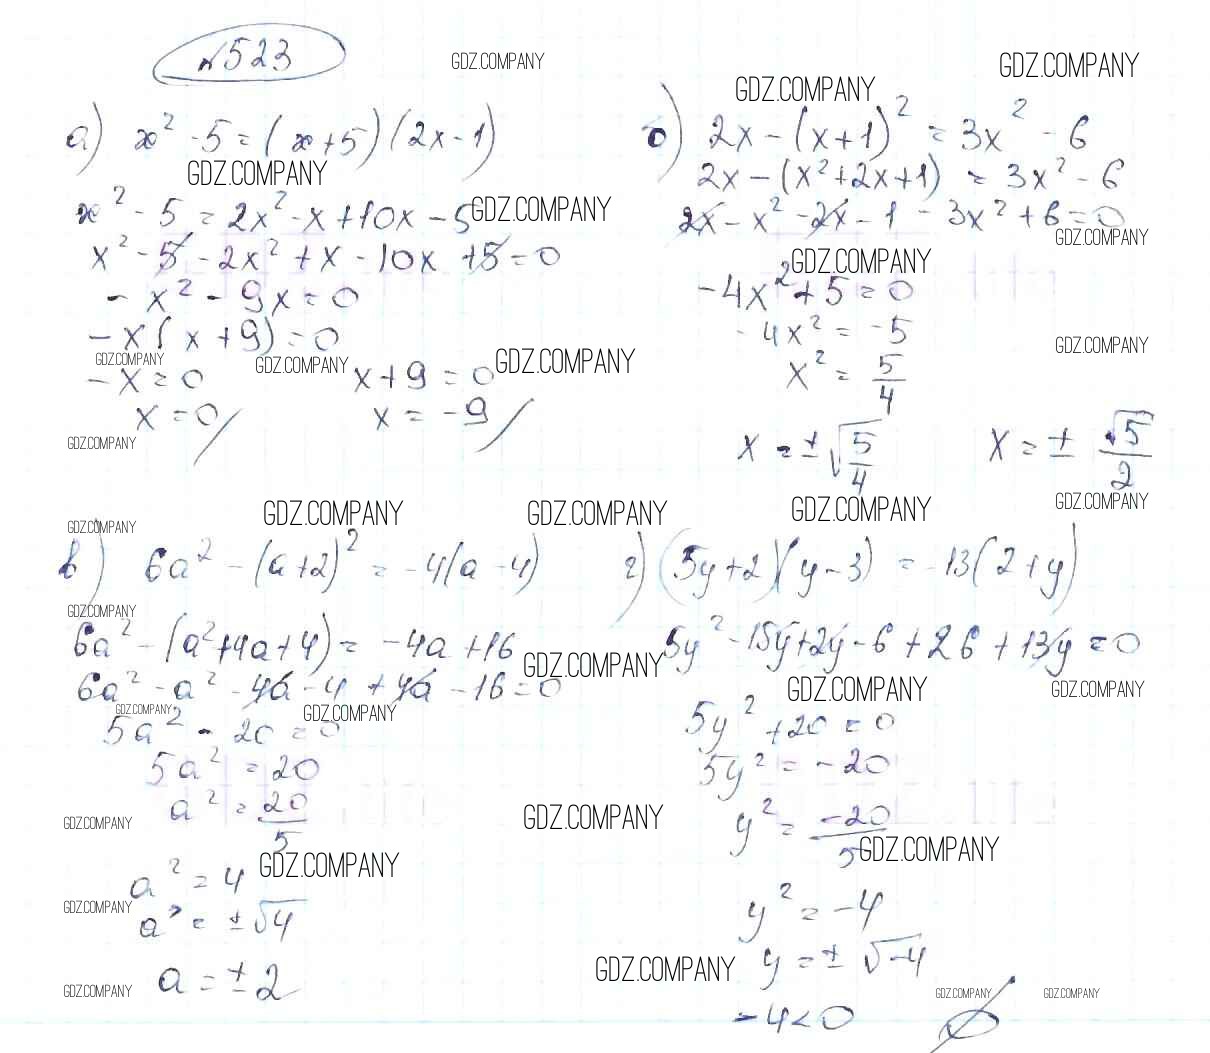 №523
GDZ.COMPANY
GDZ.COMPANY
GDZ.COMPANY
а) x² - 5 = (x+5)(2x-1)
GDZ.COMPANY
x² - 5 = 2x² - x + 10x - 5
GDZ.COMPANY
x² - 5 - 2x² + x - 10x + 5 = 0
- x² - 9x = 0
- x(x+9) = 0
GDZ.COMPANY
GDZ.COMPANY
GDZ.COMPANY
- x = 0 x+9 = 0
x = 0 x = -9
GDZ.COMPANY
б) 2x - (x+1)² = 3x² - 6
2x - (x²+2x+1) = 3x² - 6
2x - x² - 2x - 1 - 3x² + 6 = 0
GDZ.COMPANY
GDZ.COMPANY
-4x² + 5 = 0
-4x² = -5
GDZ.COMPANY
x² = 5/4
x = ±√5/4 x = ± √5/2
GDZ.COMPANY
GDZ.COMPANY
GDZ.COMPANY
GDZ.COMPANY
GDZ.COMPANY
в) 6a² - (a+2)² = -4(a-4)
GDZ.COMPANY
6a² - (a²+4a+4) = -4a+16
GDZ.COMPANY
6a² - a² - 4a - 4 + 4a - 16 = 0
GDZ.COMPANY
GDZ.COMPANY
5a² - 20 = 0
5a² = 20
a² = 20/5
GDZ.COMPANY
GDZ.COMPANY
GDZ.COMPANY
a² = 4
GDZ.COMPANY
a² = ±√4
a = ±2
GDZ.COMPANY
г) (5y+2)(y-3) = -13(2+y)
5y² - 15y + 2y - 6 + 26 + 13y = 0
GDZ.COMPANY
GDZ.COMPANY
5y² + 20 = 0
5y² = -20
y² = -20/5
GDZ.COMPANY
y² = -4
y = ± √-4
GDZ.COMPANY
GDZ.COMPANY
GDZ.COMPANY
-4 < 0 ∅